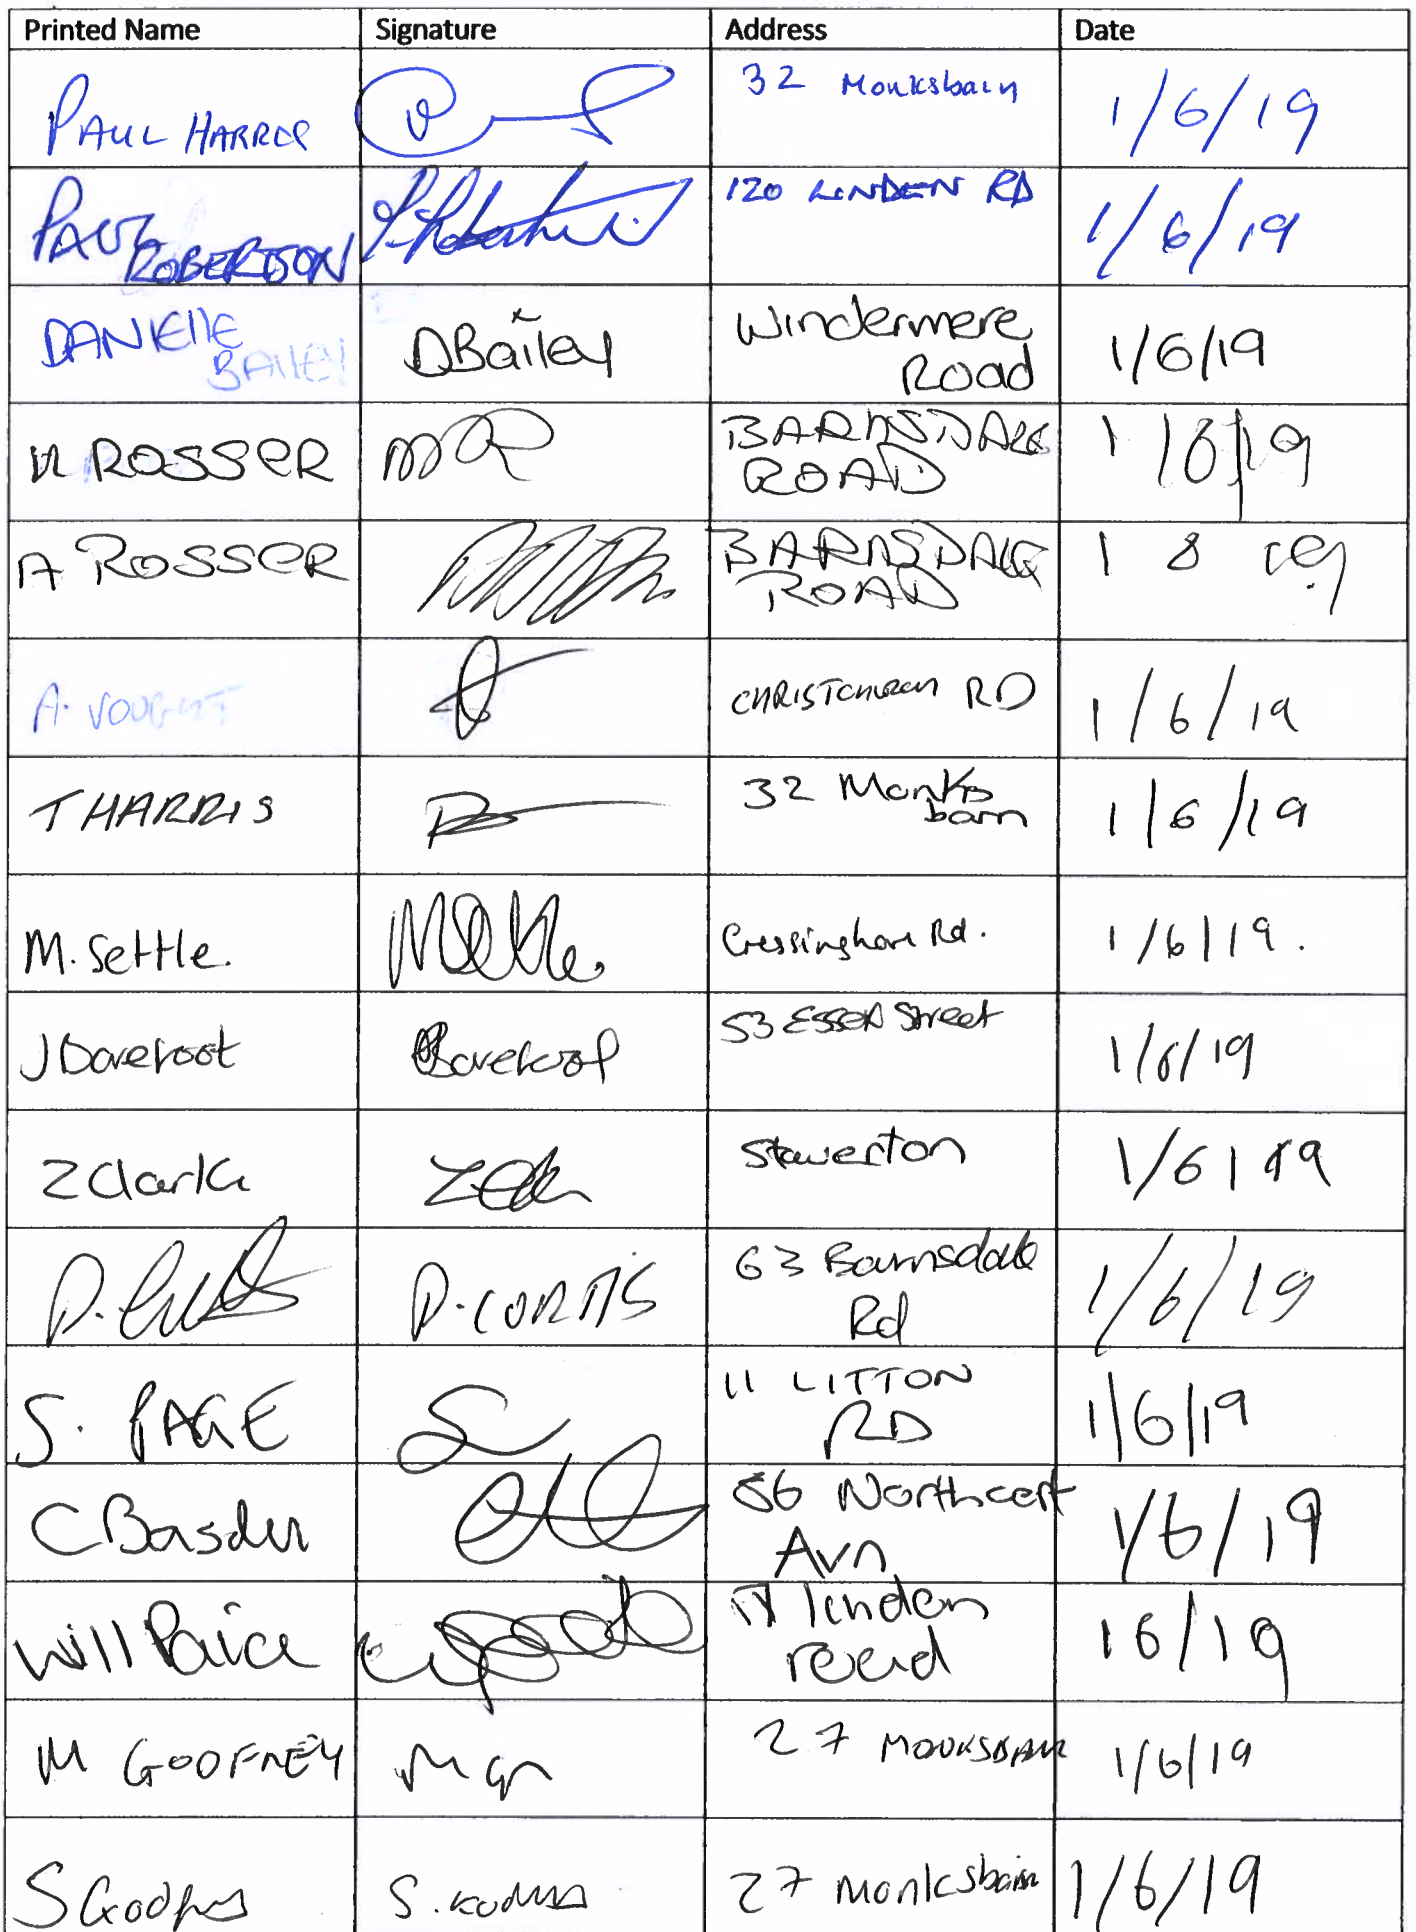 Printed Name Signature Address Date
PAUL HARRIS 32 Monksbarn 1/6/19
PAUL ROBERTSON P. Robertson 120 LINDEN RD 1/6/19
DANIELLE BAILEY DBailey Windermere Road 1/6/19
M ROSSER MR BARNSDALE ROAD 1/6/19
A ROSSER BARNSDALE ROAD 1
A. VOUGHT CHRISTCHURCH RD 1/6/19
T HARRIS 32 Monks barn 1/6/19
M. Settle. MSettle. Cressingham Rd. 1/6/19.
J Barefoot Barefoot 53 ESSEX Street 1/6/19
Z Clark Staverton 1/6/19
D. Curtis D. CURTIS 63 Barnsdale Rd 1/6/19
S. PAGE 11 LITTON RD 1/6/19
C Basden 56 Northcort Avn 1/6/19
Will Paice linden road 1 6/19
M GODFREY 27 MONKSBARN 1/6/19
S Godfrey 27 Monksbarn 1/6/19